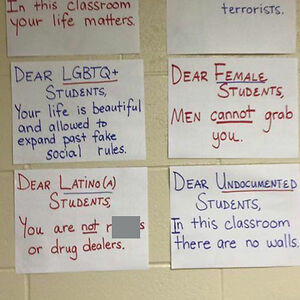 In this classroom
your life matters.
terrorists.
DEAR LGBTQ+
STUDENTS,
Your life is beautiful
and allowed to
expand past fake
social rules.
DEAR FEMALE
STUDENTS,
MEN cannot grab
you.
DEAR LATINO(A)
STUDENTS,
You are not r s
or drug dealers.
DEAR UNDOCUMENTED
STUDENTS,
In this classroom
there are no walls.